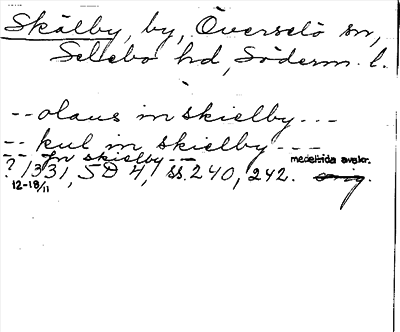 Skälby, by, Överselö sn,
Selebo hd, Söderm. l.
-- olaus in skielby ---
-- kul in skielby ---
-- Jn skielby --
? 1331, SD 4, ss. 240, 242. medeltida avskr. orig.
12-18/11